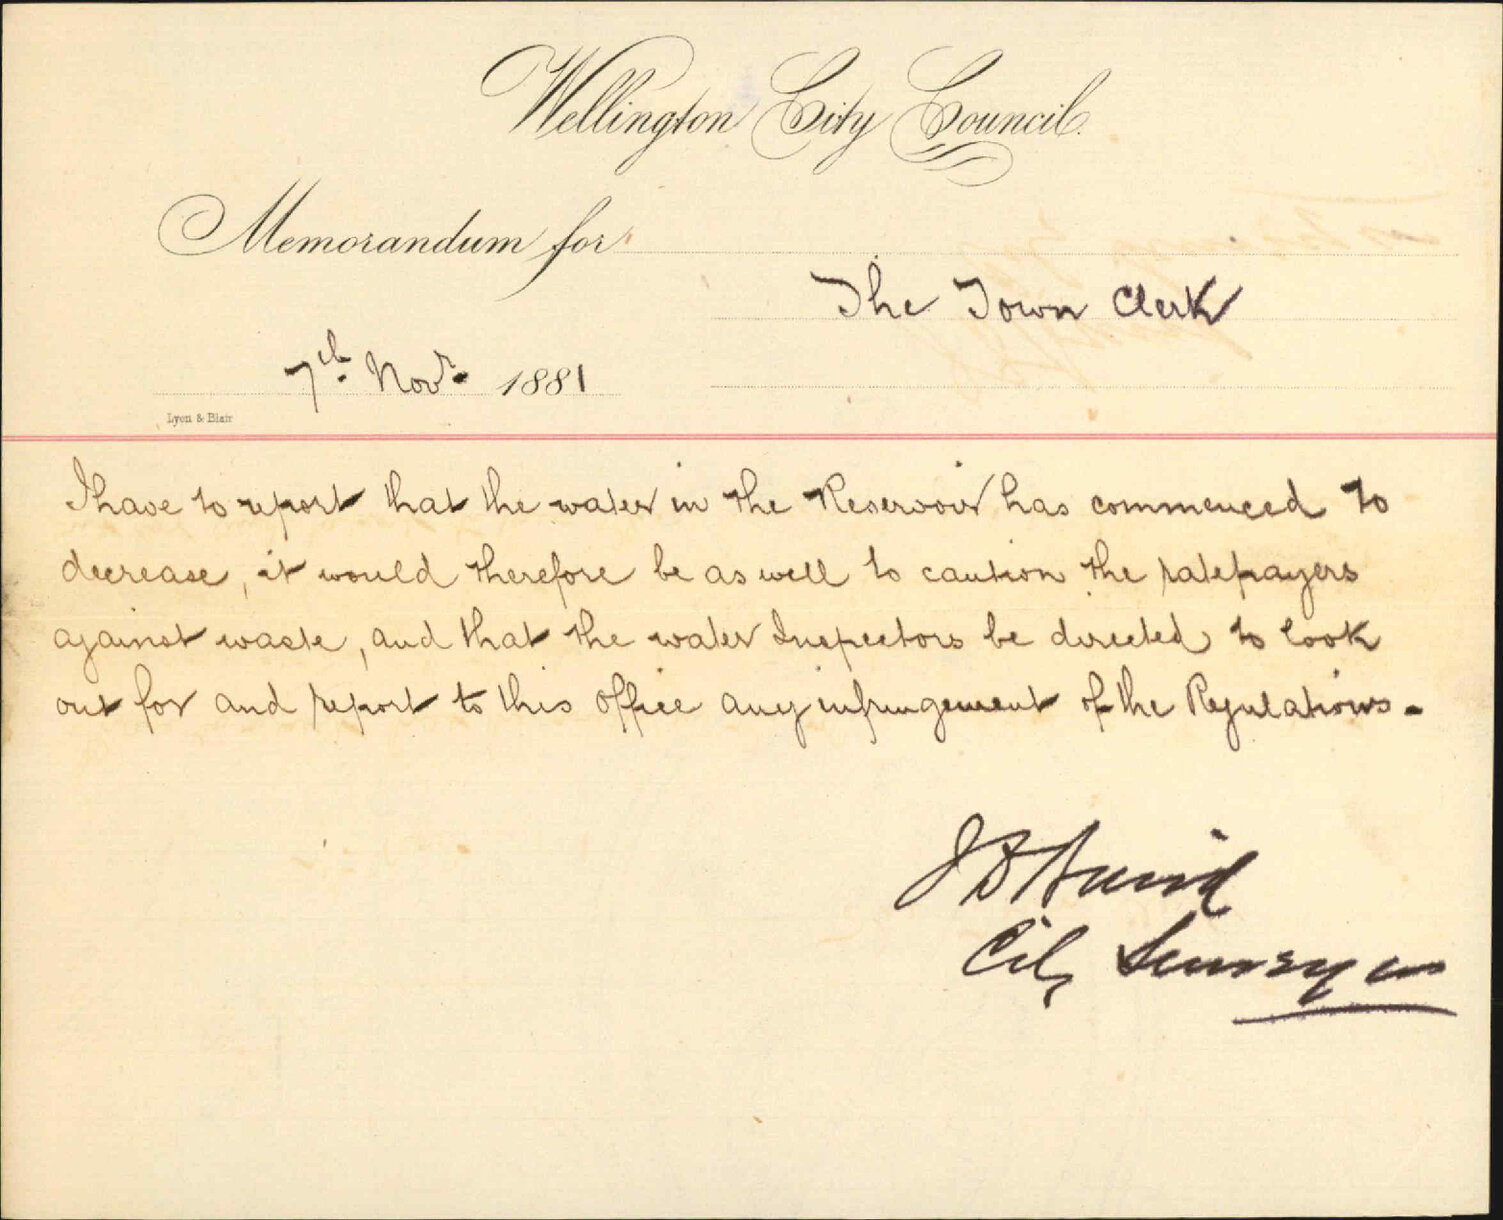 Wellington City Council.
Memorandum for
The Town Clerk
7th. Novr. 1881
Lyon & Blair
I have to report that the water in the Reservoir has commenced to
decrease, it would therefore be as well to caution the ratepayers
against waste, and that the water Inspectors be directed to look
out for and report to this office any infringement of the Regulations -
J D Baird
City Surveyor